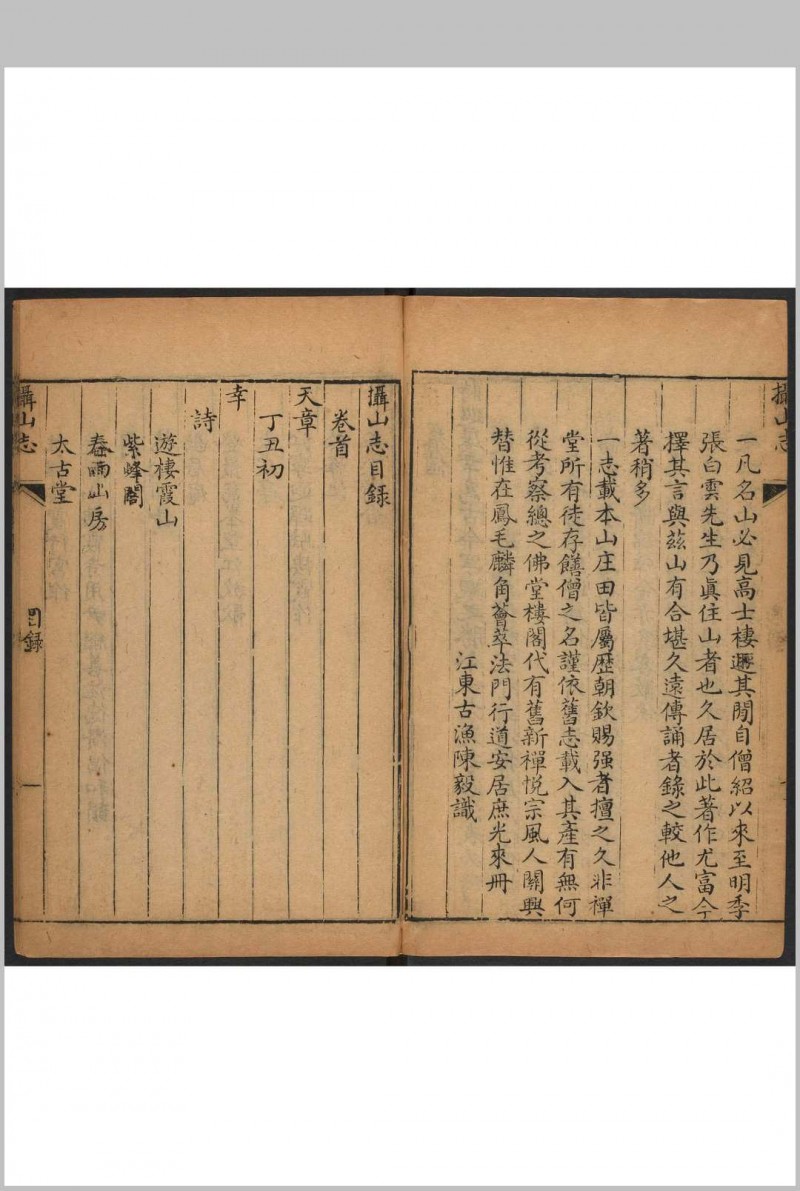 攝山志
一凡名山必見高士棲遯其間自僧紹以來至明季
張白雲先生乃眞住山者也久居於此著作尤富今
擇其言與茲山有合堪久遠傳誦者錄之較他人之
著稍多
一志載本山庄田皆屬歷朝欽賜强者擅之久非禪
堂所有徒存饍僧之名謹依舊志載入其產有無何
從考察總之佛堂樓閣代有舊新禪悦宗風人關興
替惟在鳳毛麟角薈萃法門行道安居庶光來冊
江東古漁陳毅識
攝山志目錄
卷首
天章
丁丑初
幸
詩
遊棲霞山
紫峰閣
春雨山房
太古堂
攝山志
目錄
一